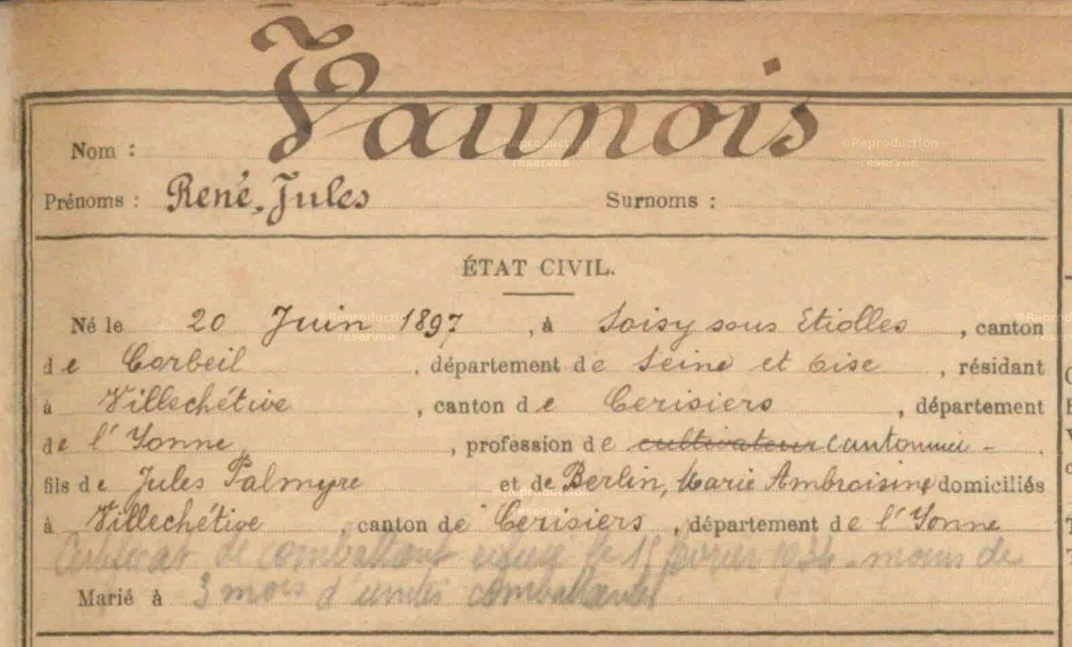 Vaunois
Nom :
Prénoms : René, Jules Surnoms :
ÉTAT CIVIL.
Né le 20 Juin 1897, à Soisy sous Etiolles, canton
de Corbeil, département de Seine et Oise, résidant
à Villechétive, canton de Cerisiers, département
de l'Yonne, profession de cultivateur cantonnier.
fils de Jules Palmyre et de Berlin, Marie Ambroisine domiciliés
à Villechétive, canton de Cerisiers, département de l'Yonne
Certificat de combattant refusé le février 1934 - moins de
Marié à 3 mois d'unités combattantes
©Reproduction réservée
©Reproduction réservée